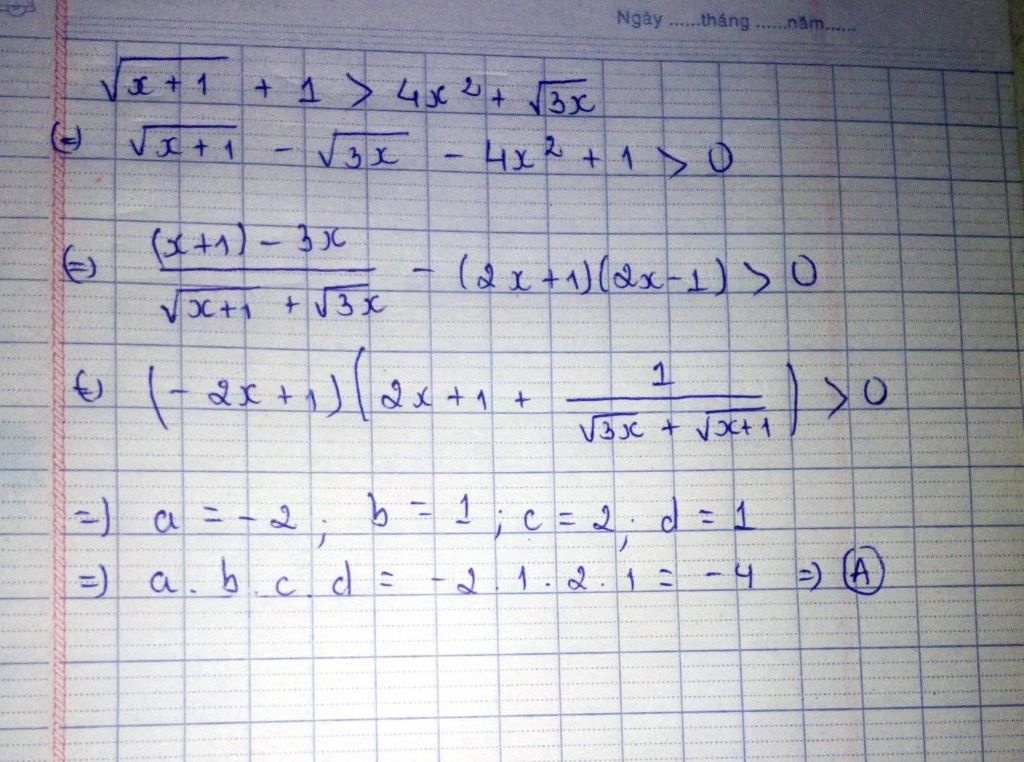 Ngày ......tháng ......năm......
√(x+1) + 1 > 4x² + √(3x)
(=) √(x+1) - √(3x) - 4x² + 1 > 0
(=) ((x+1) - 3x)/(√(x+1) + √(3x)) - (2x+1)(2x-1) > 0
(=) (-2x+1)(2x+1 + 1/(√(3x) + √(x+1))) > 0
=) a = -2; b = 1; c = 2; d = 1
=) a.b.c.d = -2.1.2.1 = -4 =) A